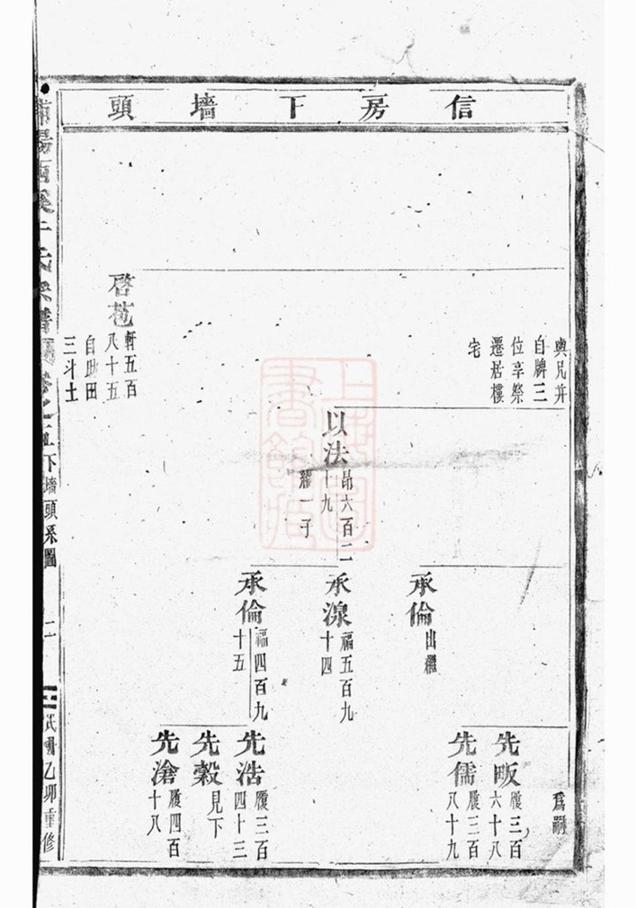 信房下墻頭
與凡并
自牌三
位享祭
遷居樓
宅
啓苞
軒五百
八十五
自助田
三斗土
以法
昂六百二
十九
繼一子
承倫
出繼
承湶
福五百九
十四
承倫
福四百九
十五
為嗣
先畈
履三百
六十八
先儒
履三百
八十九
先浩
履三百
四十三
先穀
見下
先滄
履四百
十八
下墻頭系圖
二
民國乙卯重修